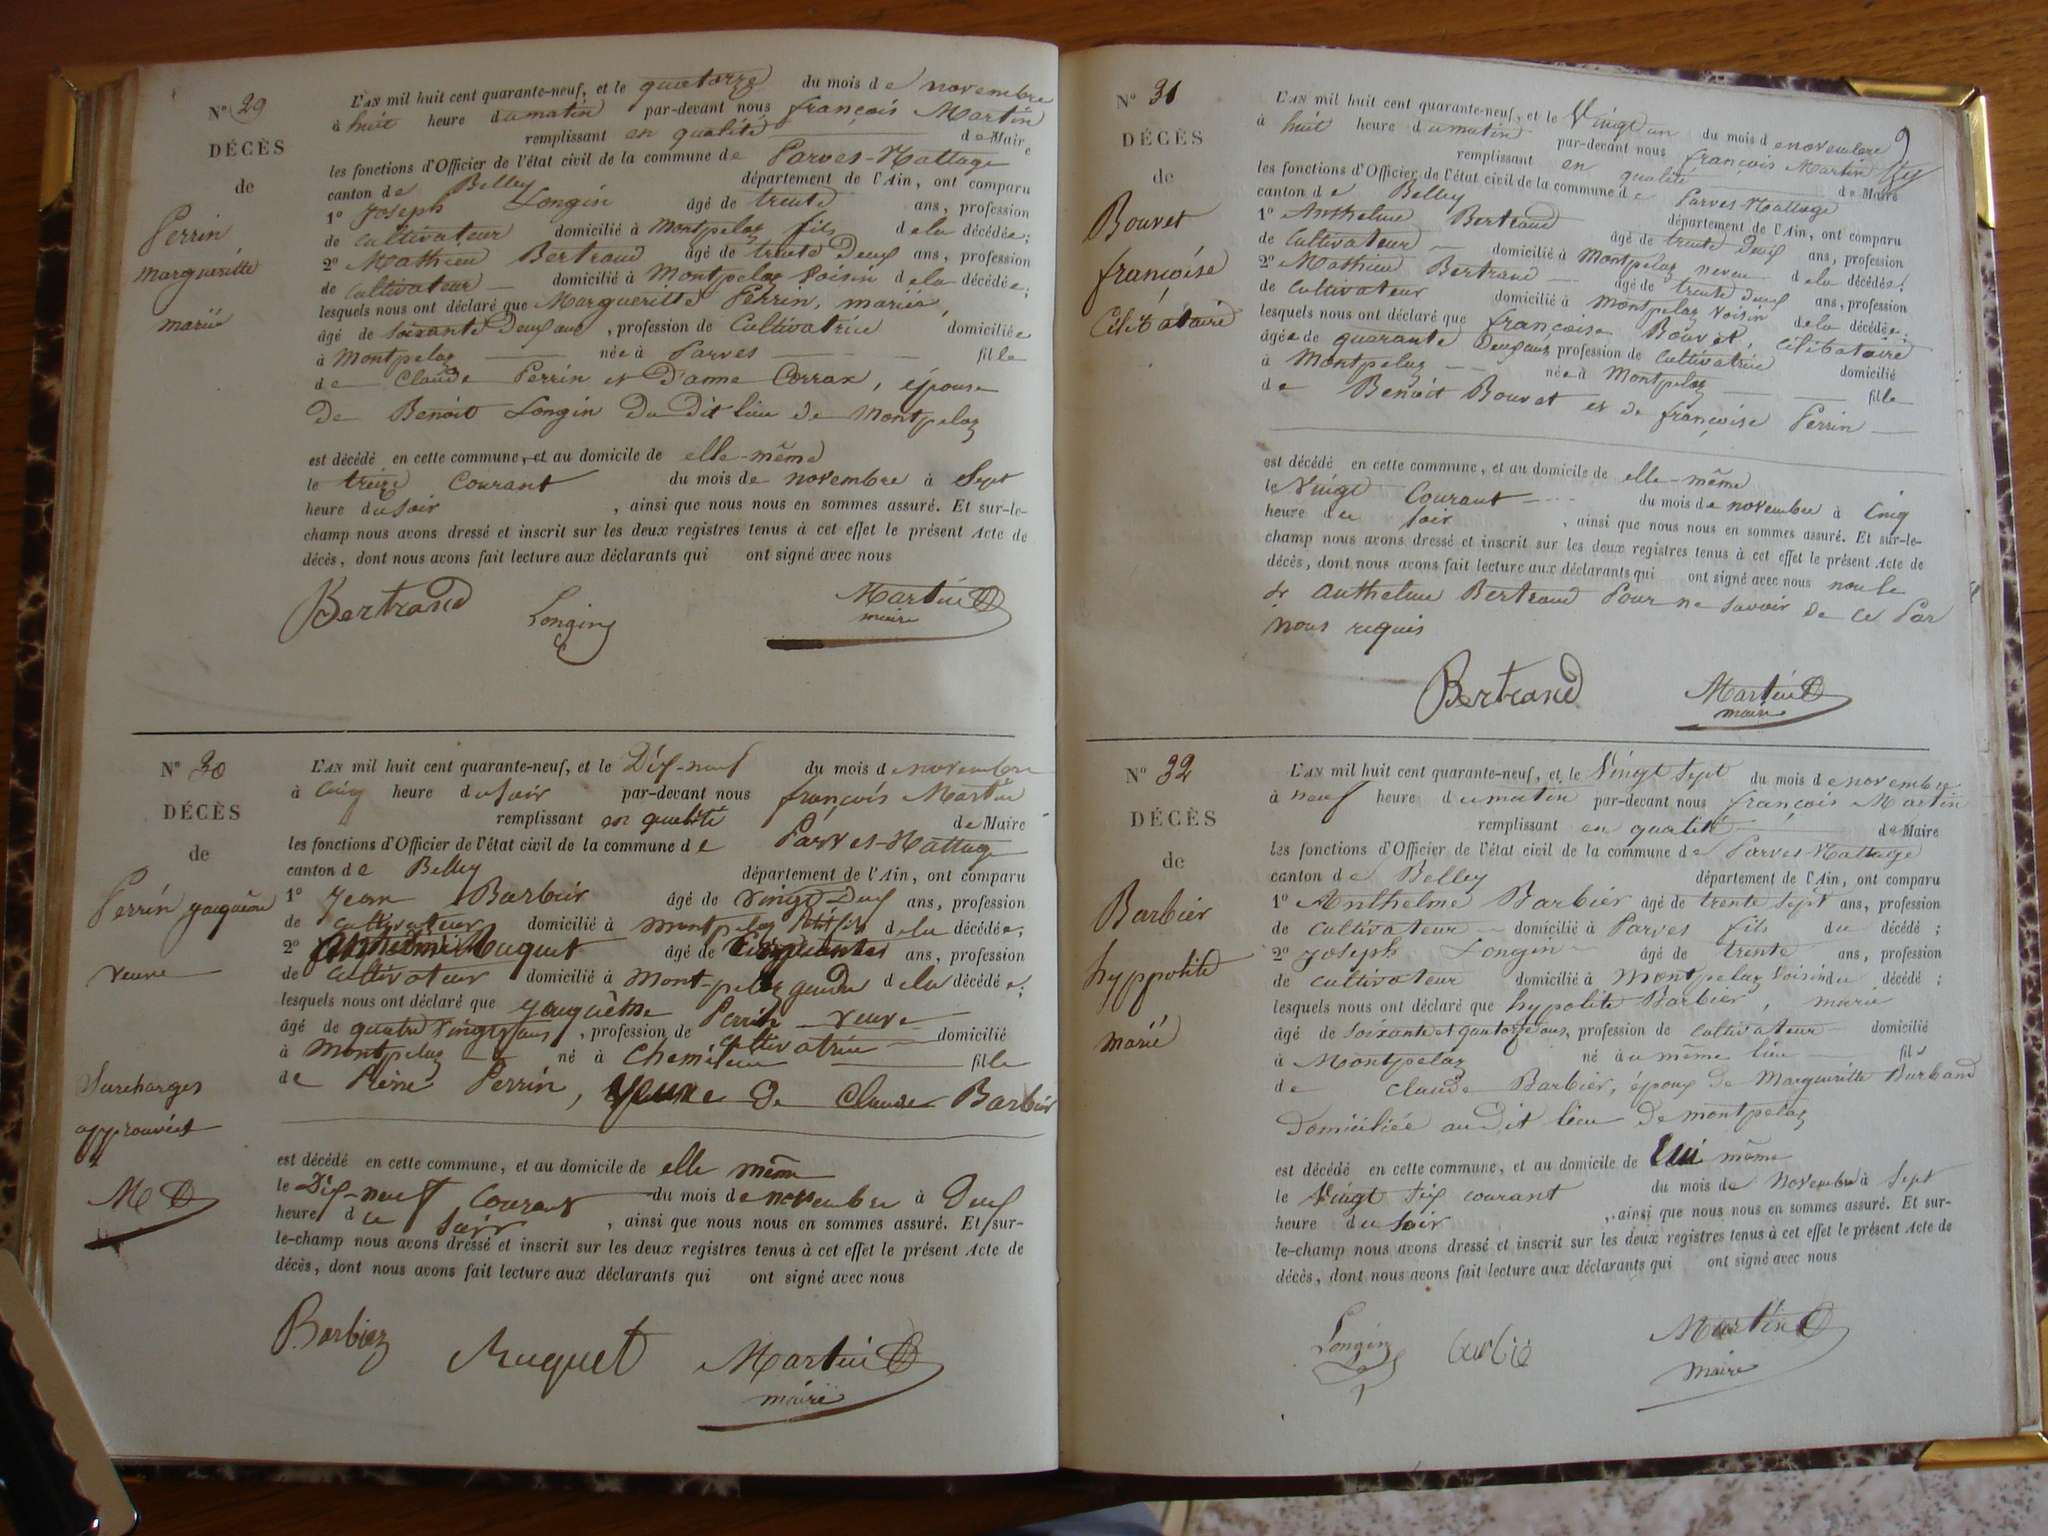 N° 29
DÉCÈS
de
Perrin
Margueritte
mariée
L'AN mil huit cent quarante-neuf, et le quatorze du mois de novembre
à huit heure du matin par-devant nous françois Martin
remplissant en qualité de Maire
les fonctions d'Officier de l'état civil de la commune de Parves-Nattage
canton de Belley département de l'Ain, ont comparu
1° Joseph Longin âgé de trente ans, profession
de cultivateur domicilié à Montpelaz fils de la décédée;
2° Mathieu Bertrand âgé de trente Deux ans, profession
de cultivateur domicilié à Montpelaz Voisin de la décédée;
lesquels nous ont déclaré que Margueritte Perrin, mariée,
âgé de soixante Deux ans, profession de Cultivatrice domiciliée
à Montpelaz née à Parves fille
de Claude Perrin et D'anne Corrax, épouse
De Benoit Longin Du Dit lieu de Montpelaz
est décédé en cette commune, et au domicile de elle-même
le treize Courant du mois de novembre à Sept
heure du Soir, ainsi que nous nous en sommes assuré. Et sur-le-
champ nous avons dressé et inscrit sur les deux registres tenus à cet effet le présent Acte de
décès, dont nous avons fait lecture aux déclarants qui ont signé avec nous
Bertrand Longin Martin
maire
N° 30
DÉCÈS
de
Perrin
veuve
Surcharges
approuvées
L'AN mil huit cent quarante-neuf, et le Dix-neuf du mois de novembre
à Cinq heure du soir par-devant nous françois Martin
remplissant en qualité de Maire
les fonctions d'Officier de l'état civil de la commune de Parves-Nattage
canton de Belley département de l'Ain, ont comparu
1° Jean Barbier âgé de Vingt Deux ans, profession
de cultivateur domicilié à Montpelaz Petit fils de la décédée;
2° Anthelme Ruquet âgé de Cinquante ans, profession
de Cultivateur domicilié à Mont-pelaz gendre de la décédée;
lesquels nous ont déclaré que Perrin veuve
âgé de quatre Vingts ans, profession de cultivatrice domicilié
à Montpelaz né à Chemilieu fille
de Pierre Perrin, Veuve De Claude Barbier
est décédé en cette commune, et au domicile de elle même
le Dix-neuf Courant du mois de novembre à Deux
heure du Soir, ainsi que nous nous en sommes assuré. Et sur-
le-champ nous avons dressé et inscrit sur les deux registres tenus à cet effet le présent Acte de
décès, dont nous avons fait lecture aux déclarants qui ont signé avec nous
Barbier Ruquet Martin
maire
N° 31
DÉCÈS
de
Bouvet
françoise
Célibataire
L'AN mil huit cent quarante-neuf, et le Vingt un du mois de novembre
à huit heure du matin par-devant nous françois Martin
remplissant en qualité de Maire
les fonctions d'Officier de l'état civil de la commune de Parves-Nattage
canton de Belley département de l'Ain, ont comparu
1° Anthelme Bertrand âgé de trente Deux ans, profession
de Cultivateur domicilié à Montpelaz neveu de la décédée;
2° Mathieu Bertrand âgé de trente Deux ans, profession
de Cultivateur domicilié à Montpelaz Voisin de la décédée;
lesquels nous ont déclaré que françoise Bouvet, Célibataire
âgée de quarante Deux ans, profession de Cultivatrice domicilié
à Montpelaz née à Montpelaz fille
de Benoit Bouvet et de françoise Perrin
est décédé en cette commune, et au domicile de elle-même
le Vingt Courant du mois de novembre à Cinq
heure du soir, ainsi que nous nous en sommes assuré. Et sur-le-
champ nous avons dressé et inscrit sur les deux registres tenus à cet effet le présent Acte de
décès, dont nous avons fait lecture aux déclarants qui ont signé avec nous non le
dt Anthelme Bertrand Pour ne savoir de ce Par
nous requis
Bertrand Martin
maire
N° 32
DÉCÈS
de
Barbier
hyppolite
marié
L'AN mil huit cent quarante-neuf, et le Vingt Sept du mois de novembre
à neuf heure du matin par-devant nous françois Martin
remplissant en qualité de Maire
les fonctions d'Officier de l'état civil de la commune de Parves-Nattage
canton de Belley département de l'Ain, ont comparu
1° Anthelme Barbier âgé de trente Sept ans, profession
de cultivateur domicilié à Parves fils du décédé;
2° Joseph Longin âgé de trente ans, profession
de cultivateur domicilié à Montpelaz Voisin du décédé;
lesquels nous ont déclaré que hypolite Barbier, marié
âgé de Soixante et quatorze ans, profession de Cultivateur domicilié
à Montpelaz né au même lieu fils
de Claude Barbier, époux de Margueritte
Domiciliée au Dit lieu De montpelaz
est décédé en cette commune, et au domicile de lui même
le Vingt Six courant du mois de Novembre à Sept
heure du Soir, ainsi que nous nous en sommes assuré. Et sur-
le-champ nous avons dressé et inscrit sur les deux registres tenus à cet effet le présent Acte de
décès, dont nous avons fait lecture aux déclarants qui ont signé avec nous
Longin Martin
maire